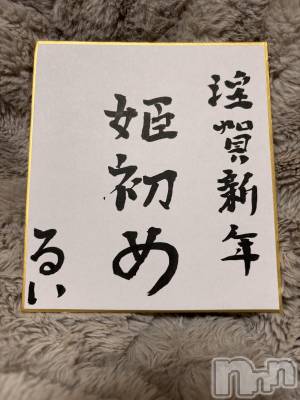 淫賀新年
姫初め
るい